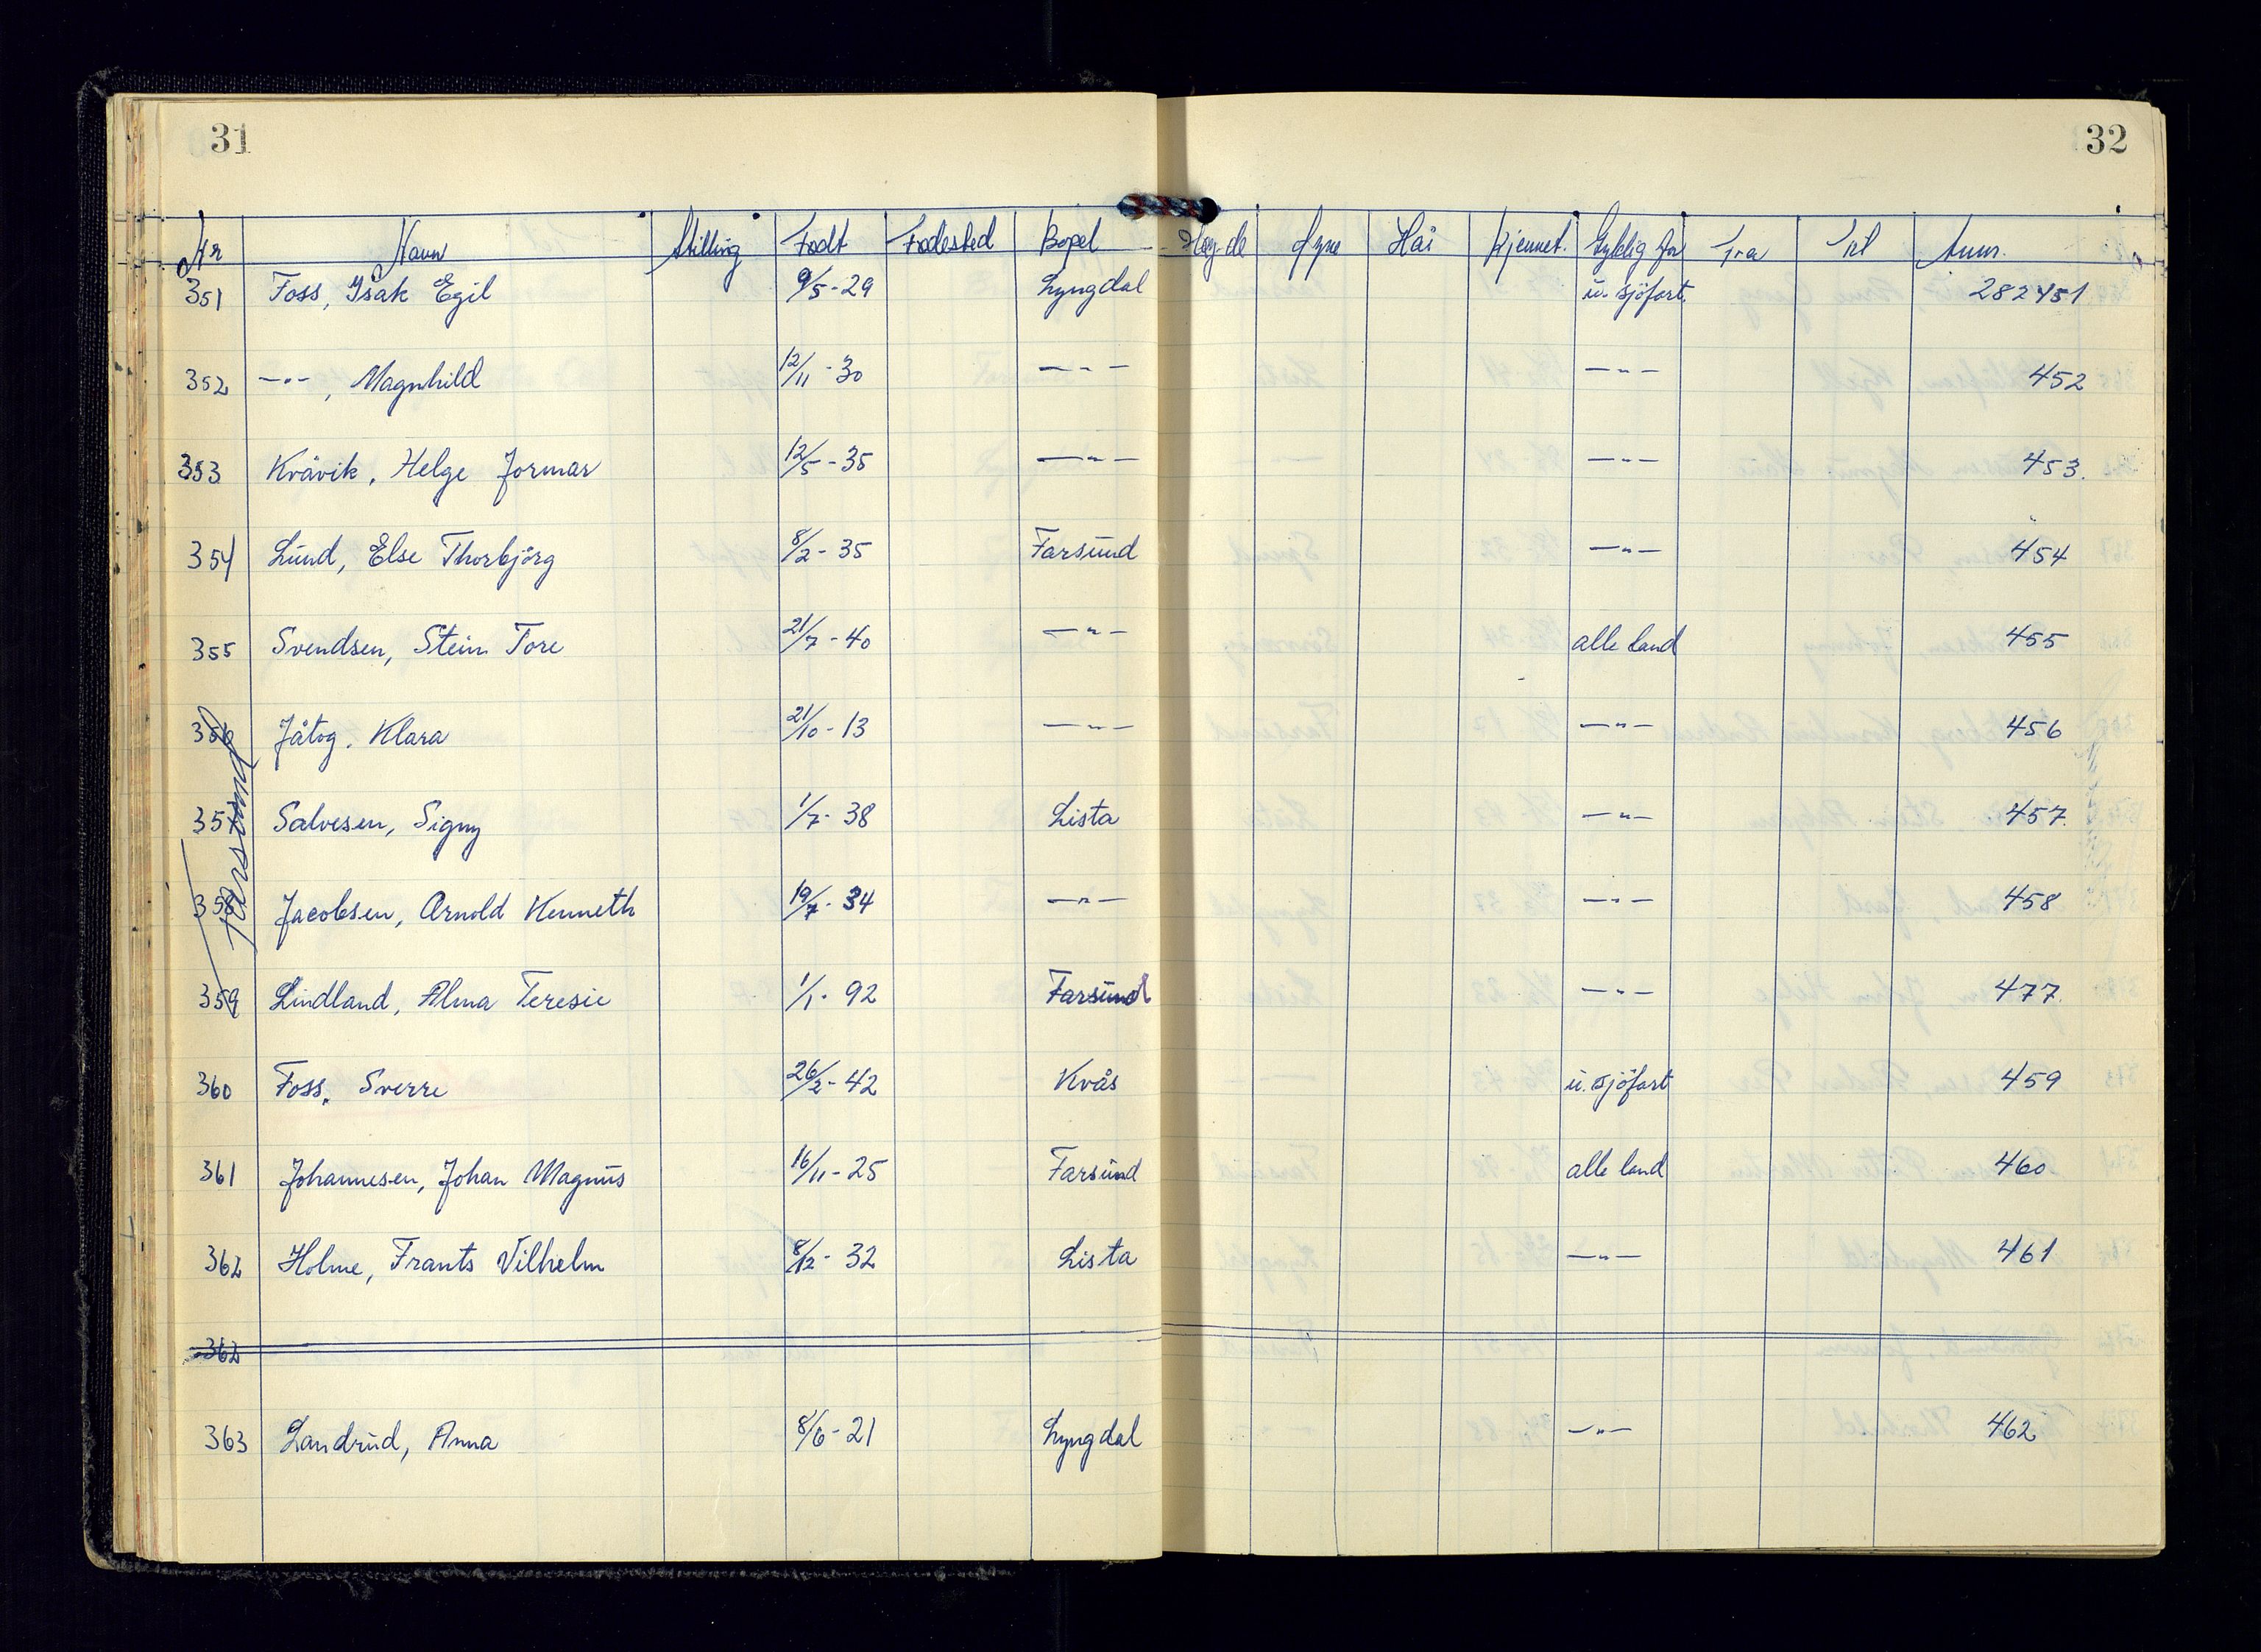 31
32
Nr Navn Stilling Født Fødested Bopel Høgde Øyne Hår Kjennet. Gyldig for Fra Til Anm.
351 Foss, Isak Egil 9/5-29 Lyngdal u. sjöfart. 282451
352 —"— , Magnhild 12/11-30 —"— —"— 452
353 Kvåvik, Helge Jormar 12/5-35 —"— —"— 453.
354 Lund, Else Thorbjörg 8/2-35 Farsund —"— 454
355 Svendsen, Stein Tore 21/7-40 —"— alle land 455
356 Jåtog, Klara 21/10-13 —"— —"— 456
357 Salvesen, Signy 1/7-38 Lista —"— 457
Farsund
358 Jacobsen, Arnold Kenneth 19/7-34 —"— —"— 458
359 Lindland, Alma Teresie 1/1-92 Farsund —"— 477
360 Foss, Sverre 26/2-42 Kvås u. sjöfart 459
361 Johannesen, Johan Magnus 16/11-25 Farsund alle land 460
362 Holme, Frants Vilhelm 8/12-32 Lista —"— 461
362
363 Landrud, Anna 8/6-21 Lyngdal —"— 462